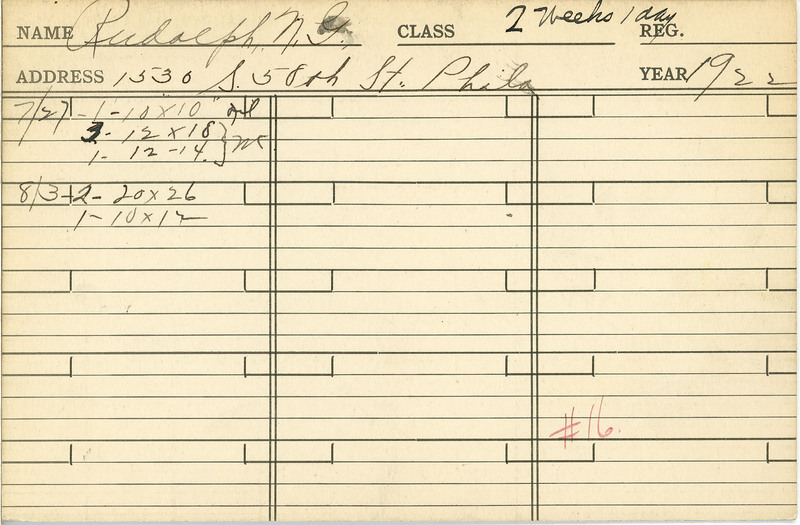 NAME Rudolph, N. G. CLASS 2 Weeks 1 day REG.
ADDRESS 1530 S. 58th St. Phila YEAR 1922
7/27 - 1 - 10 x 10"
3 - 12 x 18
1 - 12 - 14
8/3 - 2 - 20 x 26
1 - 10 x 12
#16.